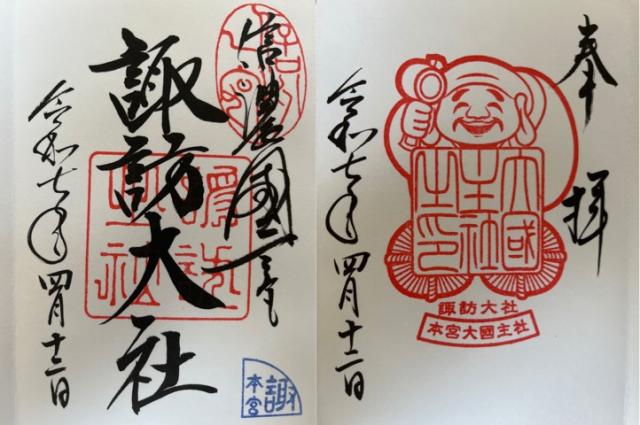 信濃國一宮
諏訪大社
令和七年四月十二日
諏
本宮
奉拝
大國主社之印
諏訪大社
本宮大國主社
令和七年四月十二日